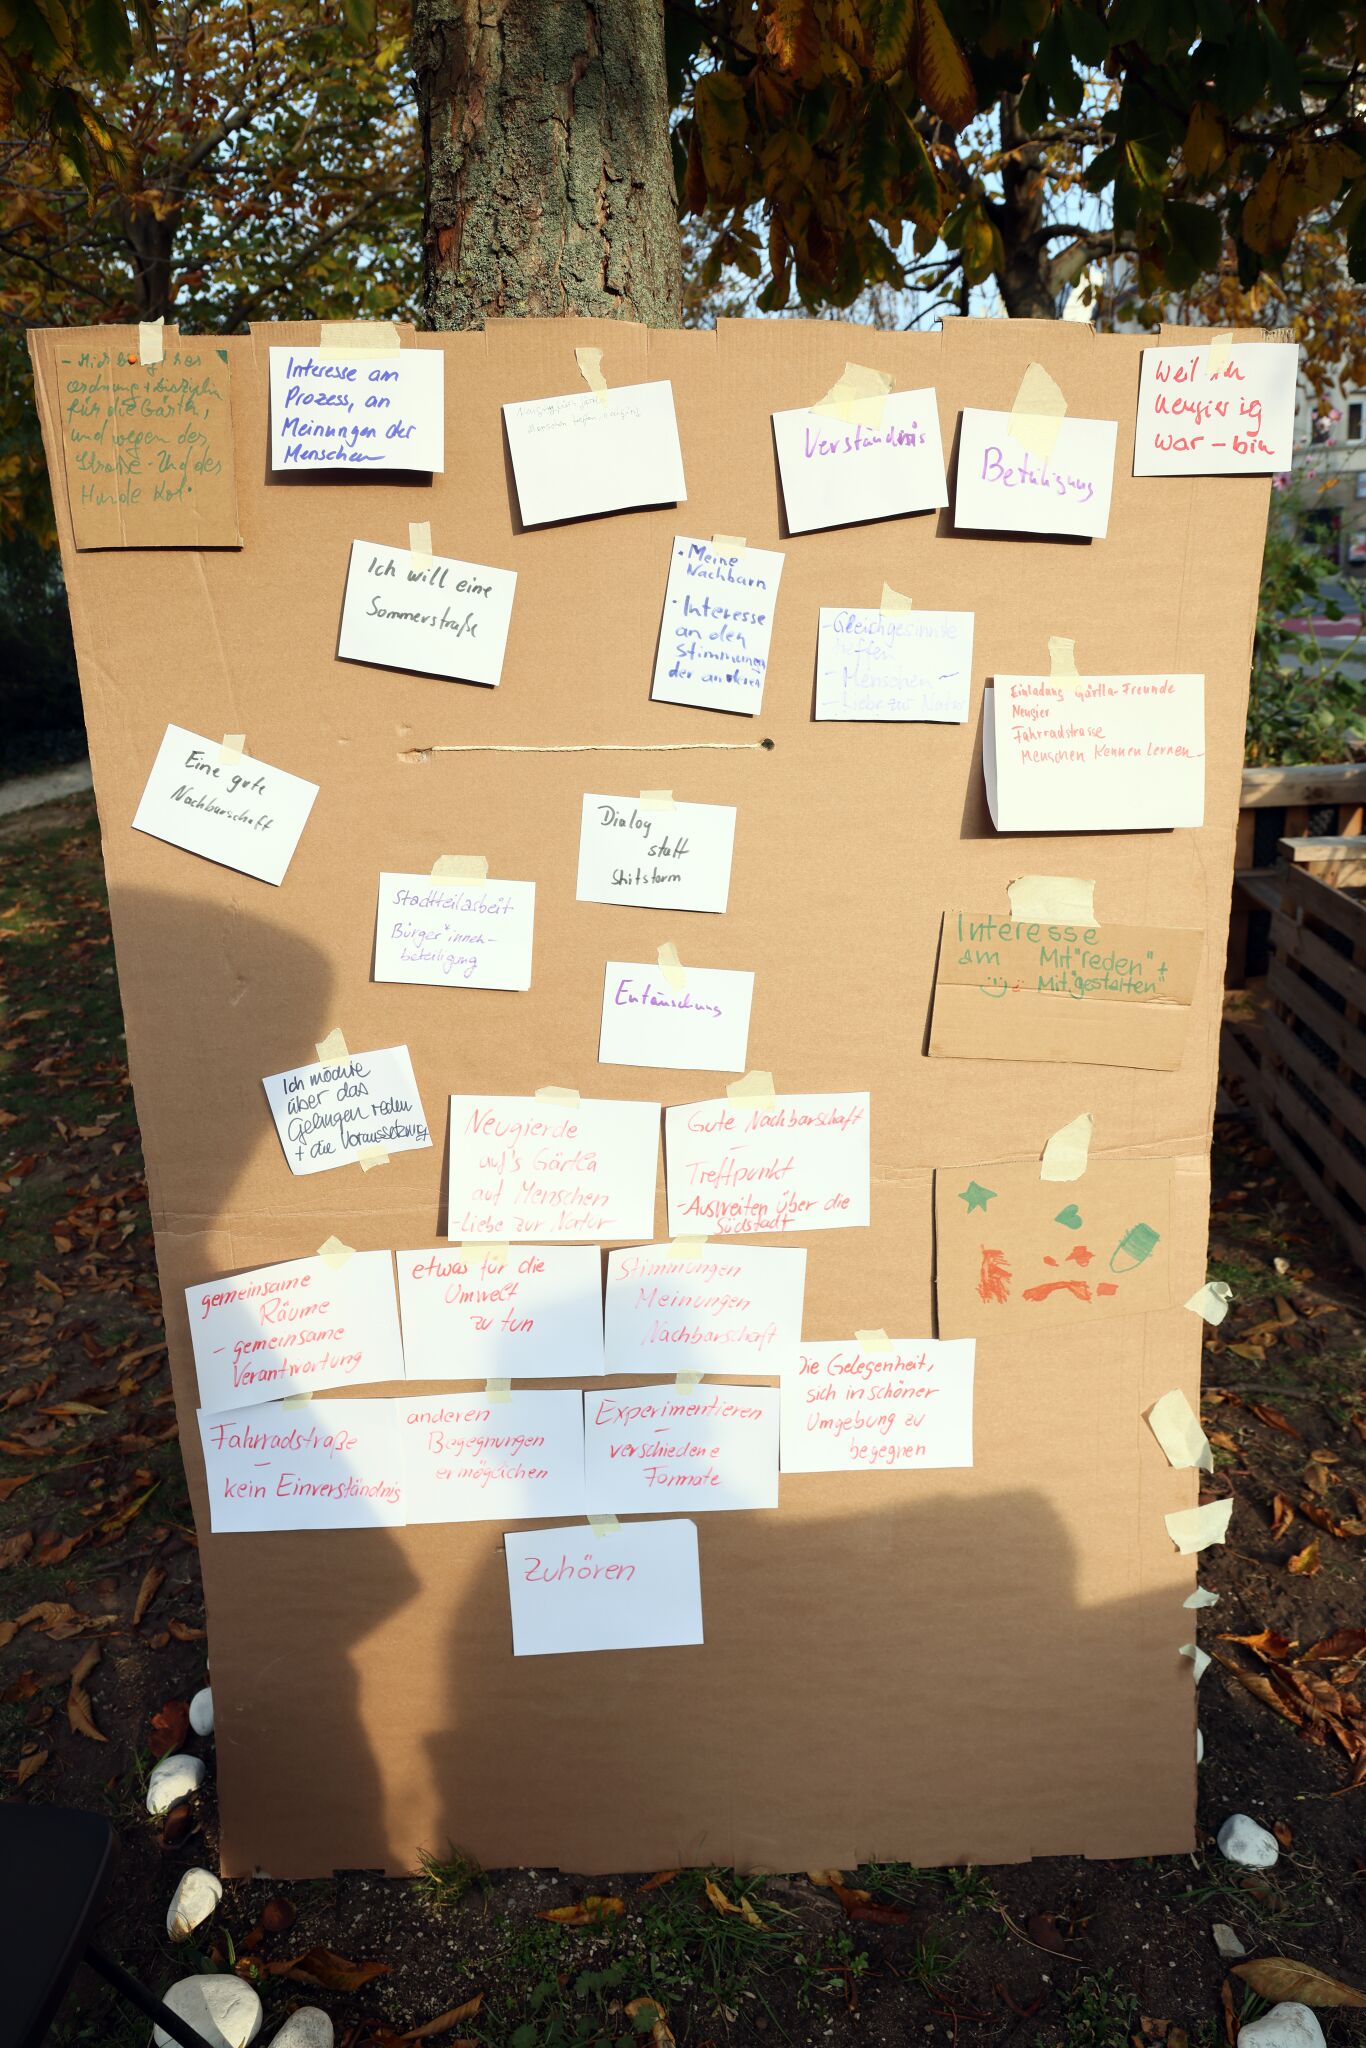 - Mich
Ordnung + Disziplin
für die Gärten,
und wegen der
Straße. Und des
Hunde Kot.
Interesse am
Prozess, an
Meinungen der
Menschen
Menschen treffen
Verständnis
Betüligung
Weil ich
neugierig
war - bin
Ich will eine
Sommerstraße
• Meine
Nachbarn
• Interesse
an den
Stimmungen
der anderen
- Gleichgesinnte
treffen
- Menschen -
- Liebe zur Natur
Einladung Gärtla-Freunde
Neugier
Fahrradstrasse
Menschen kennen lernen
Eine gute
Nachbarschaft
Dialog
statt
Shitstorm
Stadtteilarbeit
Bürger*innen-
beteiligung
Entäuschung
Interesse
am Mit"reden" +
Mit"gestalten"
Ich möchte
über das
Gelingen reden
+ die Voraussetzung
Neugierde
auf's Gärtla
auf Menschen
- Liebe zur Natur
Gute Nachbarschaft
-
Treffpunkt
- Ausweiten über die
Südstadt
gemeinsame
Räume
- gemeinsame
Verantwortung
etwas für die
Umwelt
zu tun
Stimmungen
Meinungen
Nachbarschaft
Die Gelegenheit,
sich in schöner
Umgebung zu
begegnen
Fahrradstraße
-
kein Einverständnis
anderen
Begegnungen
ermöglichen
Experimentieren
-
verschiedene
Formate
Zuhören